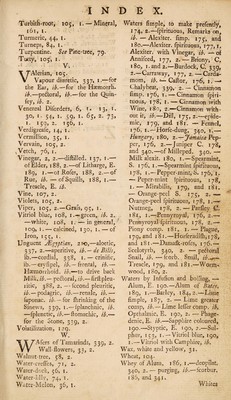 INDEX.
Turbith-root, 105, 1. — Mineral,
161, 1.
Turmeric, 44, 1.
Turneps, 84, 1.
Turpentine. See Pine-tree, 79.
Tutty, 105, 1.
V
Valerian, 105.
Vapour diuretic, 337, 1.—for
the Ear, ib.—for the Hæmorrh.
ib.—pectoral, ib.—for the Quin-
sey, ib. 2.
Venereal Disorders, 6, 1. 13, 1.
Verdigrease, 14, 1.
Vermilion, 35, 1.
Vervain, 105, 2.
Vetch, 76, 1.
Vinegar, 2, 2.—distilled, 137, 1.—
of Elder, 188, 2.—of Litharge, E.
189, 1.—of Roses, 188, 2.—of
Rue, ib.—of Squills, 188, 1.—
Treacle, E. ib.
Vine, 107, 2.
Violets, 105, 2.
Viper, 106, 2.—Grass, 95, 1.
Vitriol blue, 108, 1.—green, ib. 2.
—white, 108, 2.—in general,
109, 1.—calcined, 130, 1.—of
Iron, 125, 1.
Unguent Ægyptiac, 220,—aloetic,
337, 2.—anticolic, ib.—de Ballis,
ib.—cordial, 338, 1.—crinitic,
ib.—erysipel, ib.—femoral, ib.—
Hæmorrhoid, ib.—to drive back
Milk, ib.—pectoral, ib.—
citic, 388, 2.—second pleuritic,
ib.—podagric, ib.—renale, ib.—
saponac. ib.—for shrinking of the
Sinews, 339, 1.—splanchnic, ib.
—splenetic, ib.—stomachic, ib.—
for the Stone, 339, 2.
Volatilization, 129.
W
Wafers of Tamarinds, 339, 2.
Wall-flowers, 33, 2.
Walnut-tree, 58, 2.
Water-cresses, 71, 2.
Water-dock, 56, 1.
Water-lilly, 74, 1.
Water-Melon, 36, 1.
Waters simple, to make presently,
174, 2.—spirituous, Remarks on,
ib.—Alexiter. simp. 175, and
180.—Alexiter. spirituous, 177, 1.
Alexiter. with Vinegar, ib.—of
Anniseed, 177, 2.—Briony, C.
180, 1. and 2.—Burdock, C. 339
2.—Carraway, 177, 2.—Carda-
mom, ib.—Castor, 176, 1.—
Chalybeat, 339, 2.—Cinnamon
simp. 176, 1.—Cinnamon spiri-
tuous, 178, 1.—Cinnamon with
Wine, 180, 2.—Cinnamon with-
out it, ib.—Dill, 175, 2.—epide-
mic, 179, and 181.—Fennel,
176, 1.—Horse-dung, 340, 1.—
Hungary, 180, 2.—Jamaica Pep-
per, 176, 2.—Juniper C. 178,
and 340.—of Milleped. 340.—
Milk alexit. 180, 1.—Spearmint,
S. 176, 1.—Spearmint spirituous,
178, 1.—Pepper-mint, S. 176, 1.
—Peper-mint spirituous, 178,
1.—Mirabilis, 179, and 181.
—Orange-peel S. 175, 2.—
Orange-peel spirituous, 178, 1.—
Nutmeg, 178, 2.—
81, 1.—Pennyroyal, 176, 2.—
Pennyroyal spirituous, 178, 2.—
Piony comp. 181, 1.—Plague,
179, and 181.—Horseradish, 178,
and 181.—Damask-roses, 176.—
lochetyth, 340, 2.—pectoral
Snail, ib.—scorb. Snail, ib.—
Treacle, 179, and 181.—Worm-
wood, 180, 2.
Waters by Infusion and boiling.—
Alum, E. 190.—Alum of Ratis.
189, 1.—Barley, 184, 2.—Lime
simple, 187, 2.—Lime greater
com, ib.—Lime lesser comp. ib.
Opthalmic, E. 190, 2.—Phage-
denic, E. ib.—Sapphire coloured,
190.—Styptic, E. 190, 2.—Sul-
phur, 153, 1.—Vitriol blue, 190,
1.—Vitriol with Camphire, ib.
Wax, white and yellow, 31.
Wheat, 104.
Whey of Alum, 186, 1.—
340, 2.—purging, ib.—scorbut.
186, and 341.
Whites